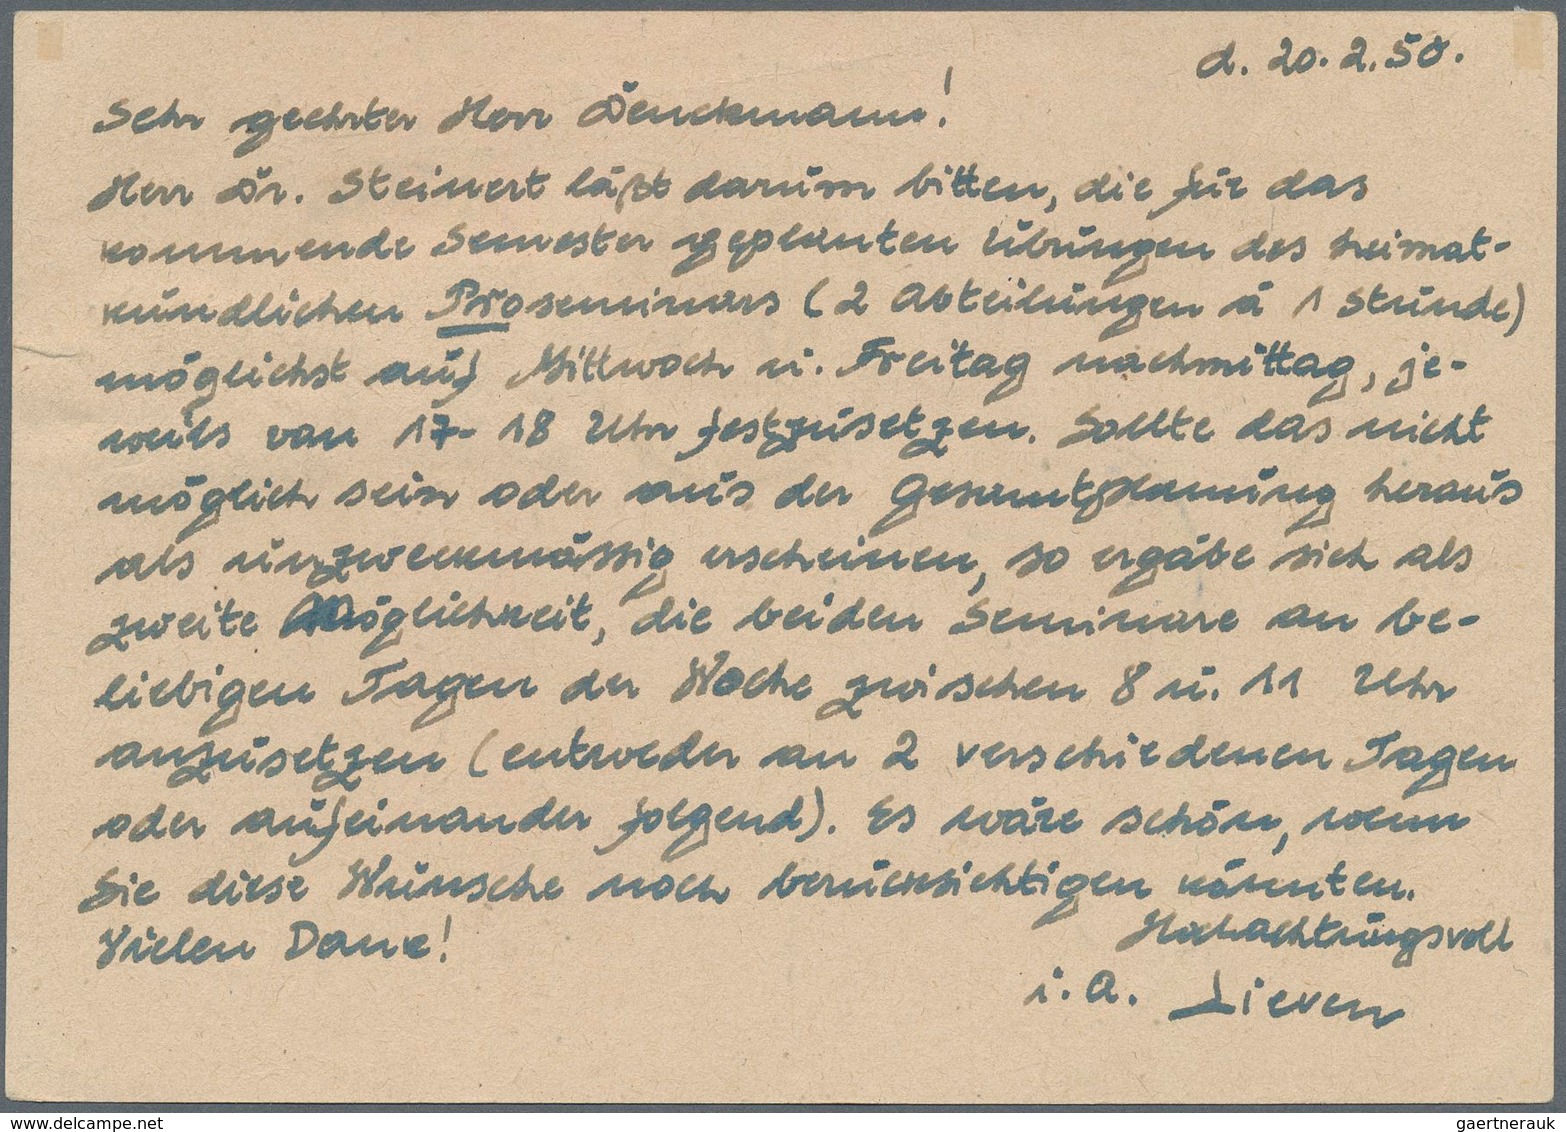 d. 20.2.50.
Sehr geehrter Herr Denckmann!
Herr Dr. Steinert läßt darum bitten, die für das
kommende Semester geplanten Übungen des heimat-
kundlichen Proseminars (2 Abteilungen à 1 Stunde)
möglichst auf Mittwoch u. Freitag nachmittag, je-
weils von 17-18 Uhr festzusetzen. Sollte das nicht
möglich sein oder aus der Gesamtplanung heraus
als unzweckmässig erscheinen, so ergäbe sich als
zweite Möglichkeit, die beiden Seminare an be-
liebigen Tagen der Woche zwischen 8 u. 11 Uhr
anzusetzen (entweder an 2 verschiedenen Tagen
oder aufeinander folgend). Es wäre schön, wenn
Sie diese Wünsche noch berücksichtigen könnten.
Vielen Dank!
Hochachtungsvoll
i. A. Lieven
www.delcampe.net
gaertnerauk